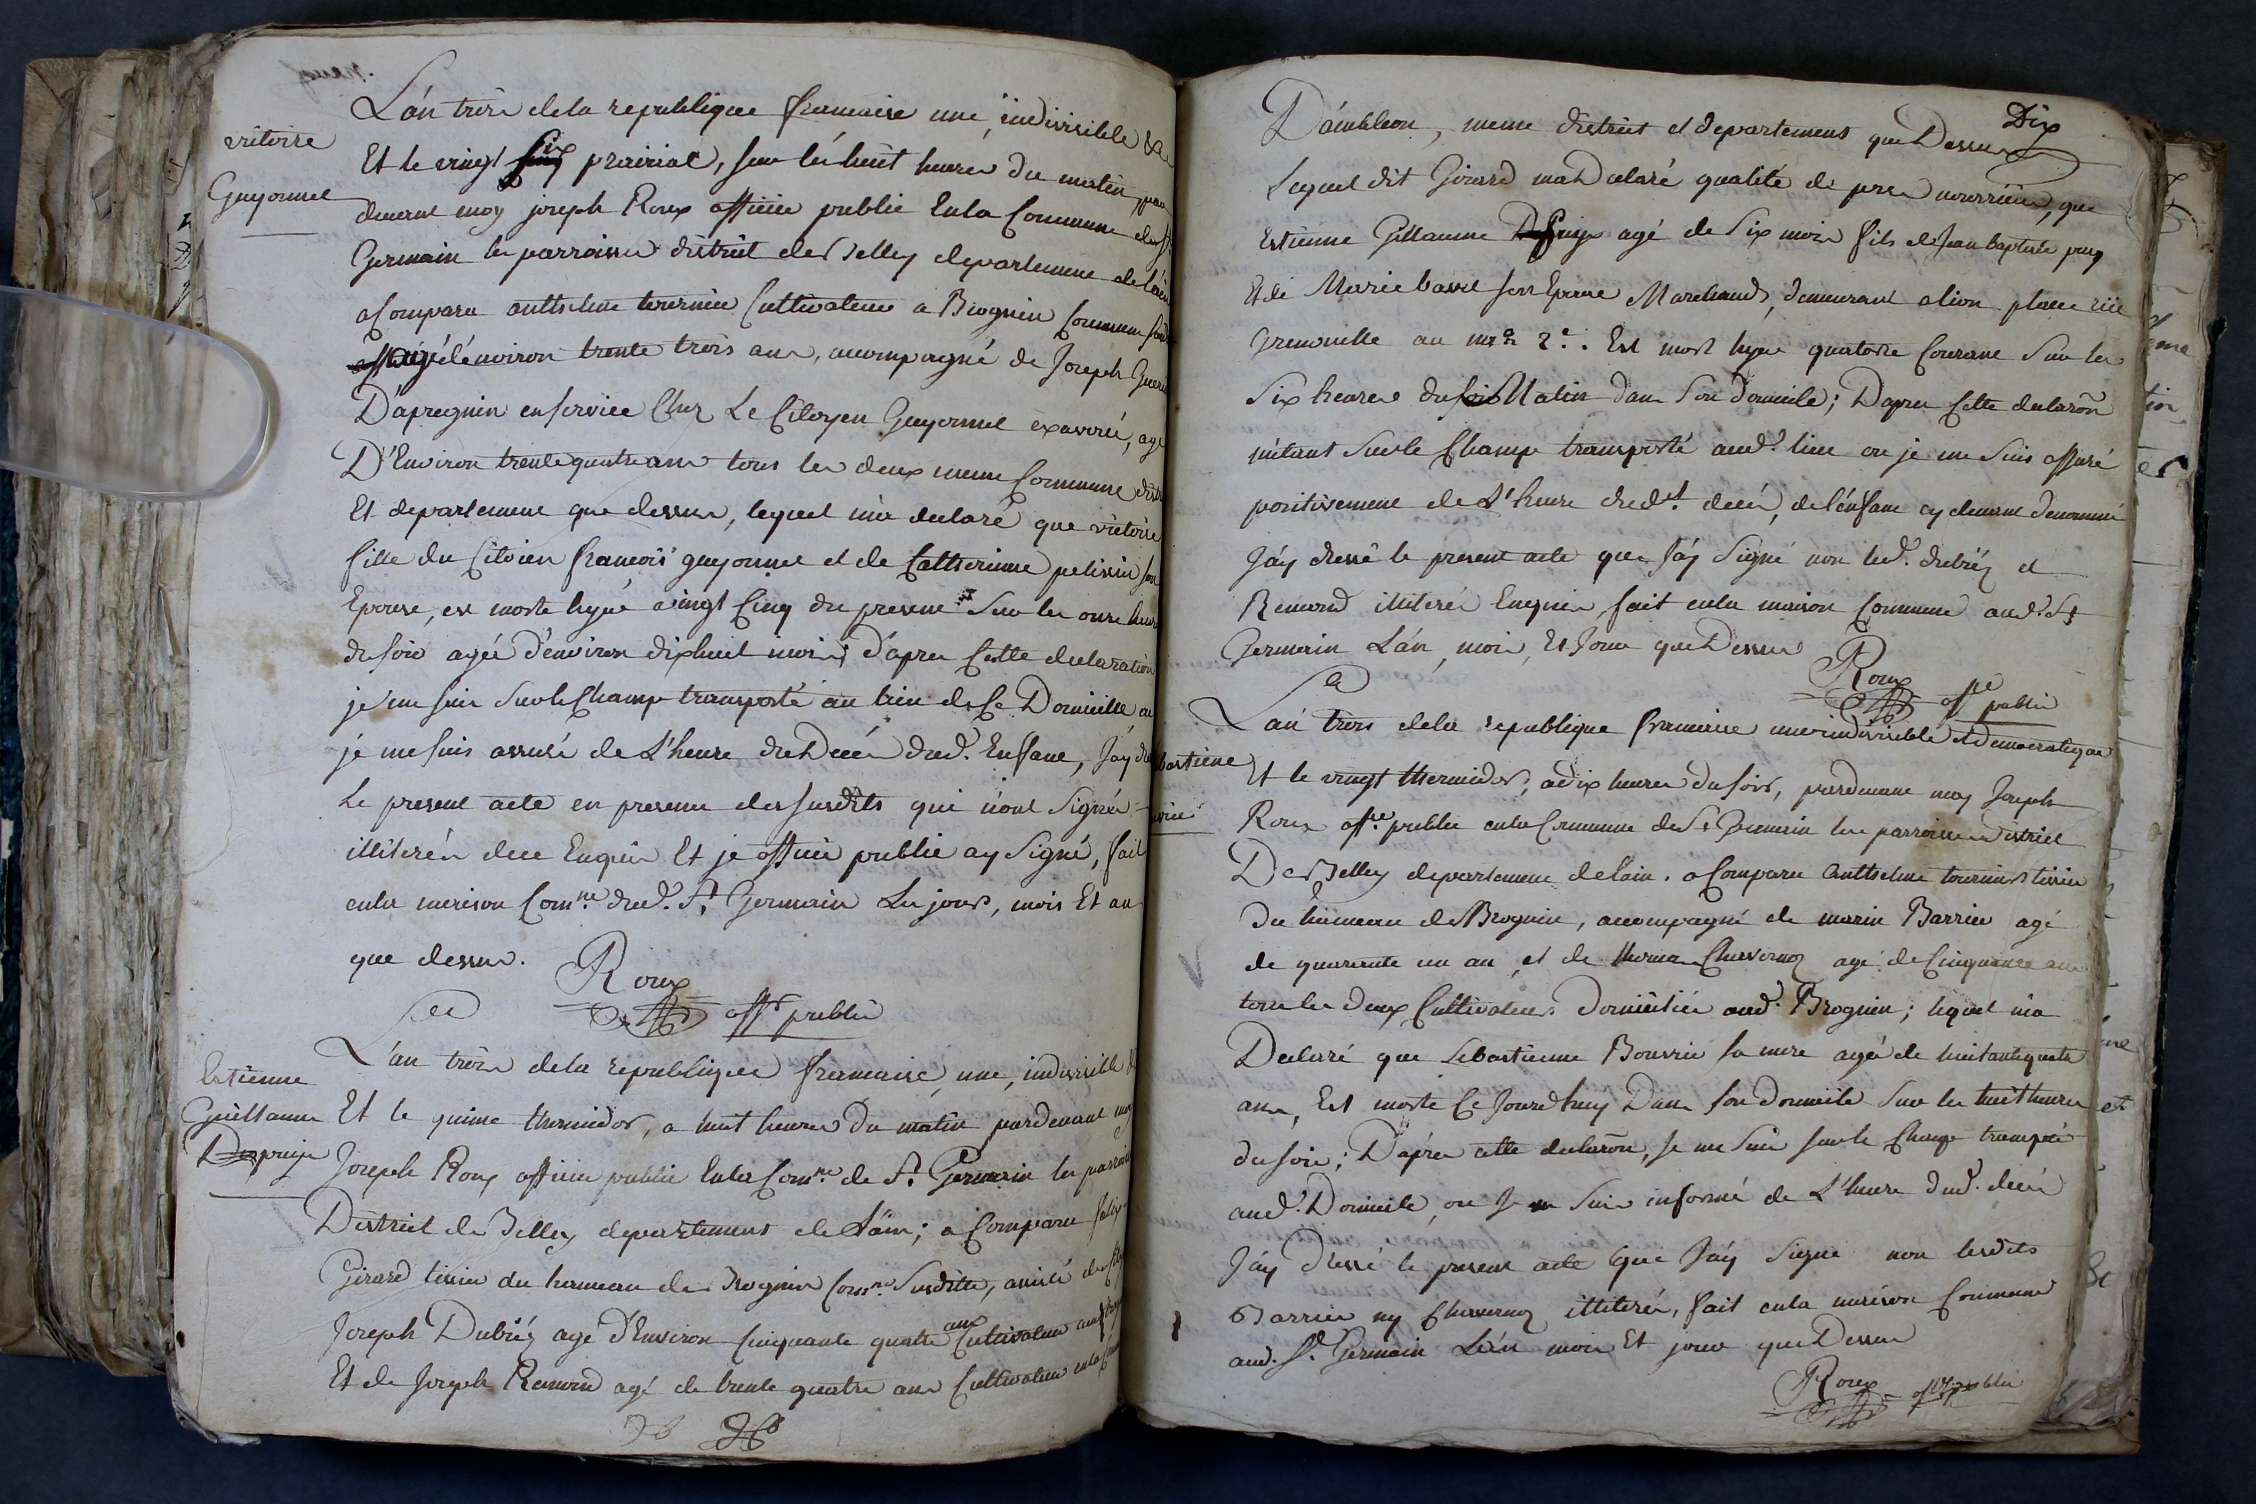 L'an trois de la republique francaise une, indivisible &a
victoire
Guyonnet
Et le vingt six prairial, sur les huit heures du matin, par
devant moy joseph Roux officier public En la Commune de St
Germain les parroisses district de Belley departement de l'ain
a Comparu anthelme tournier Cultivateur a Brognin Commune
agé d'énviron trente trois ans, acompagné de Joseph
D'apregnin en service Chez Le Citoyen Guyonnet exavoué, agé
D'Environ trente quatre ans tous les deux meme Commune
Et departement que dessus, lequel m'a declaré que victoire
fille du Citoien françois guyonnet et de Catherinne pelissin son
Epouse, est morte hyer vingt Cinq du present Sur les onze heures
du soir agée d'environ dixhuit mois; d'apres Cette declaration
je me suis Sur le Champ transporté au lieu de Ce Domicille ou
je me suis assuré de L'heure du Décés dud. Enfant, J'ay
Le present acte en presence des susdits qui n'ont Signé
illiterés dece Enquis Et je officier public ay Signé, fait
en la maison Comne. dud. St. Germain Les jours, mois Et an
que dessus.
Roux
offr public
L'an trois de la republique francaise, une, indivisible &
Estienne
Guillaume
Dupuis
Et le quinze thermidor, a huit heures du matin pardevant moy
Joseph Roux officier public En la Comne. de St. Germain les
District de Belley departement de L'ain; a Comparu
Girard tissier du hammeau de Brognin Comne. Susditte, assisté de
Joseph Dubréz agé d'Environ Cinquante quatre ans Cultivateur
Et de Joseph Remond agé de trente quatre ans Cultivateur en la
Dix
D'ambleon, meme district et departement que Dessus
Lequel dit Girard m'a Declaré qualité de pere nourricier, que
Estienne Gillaume agé de Six mois fils de Jean baptiste
Et de Marie son Epouse Marchand, demeurant a lion place rüe
Grenouille au nro 2e. Est mort hyer quatorze Courant Sur les
Six heures du Matin dans Son domicile; D'apres Cette declaron
m'étant Sur le Champ transporté aud. lieu ou je me Suis assuré
positivement de L'heure dudt. décés, de l'énfant cy devant denommé
J'ay dressé le present acte que J'ay Signé non led. dubréz et
Remond illiterés Enquis, fait en la maison Commune aud. St
Germain L'an, mois, Et Jour que Dessus
Roux
offre public
L'an trois de la republique francaise une indivisible et democratique
Et le vingt thermidor, a dix heures du soir, pardevant moy Joseph
Roux offre. public en la Commune de St Germain les parroisses District
De Belley departement de l'ain. a Comparu Anthelme tournier tissier
du hameau de Brognin, accompagné de marin Barrier agé
de quarante un an, et de Chavernoz agé de Cinquante ans
tous les deux Cultivateurs Domiciliés aud. Brognin; lequel m'a
Declaré que Sebastienne Bouvrié sa mere agée de huitante quatre
ans, Est morte Ce Jourdhuy Dans son domicile Sur les huit heures
du soir; D'aprés cette declaron, Je me Suis sur le Champ transporté
aud. Domicile, ou Je m Suis informé de L'heure dud. décés
J'ay Dressé le present acte que J'ay Signé non lesdits
Barrier ny Chavernoz illiterés, fait en la maison Commune
aud. St. Germain L'an mois Et jour que Dessus
Roux
offr public